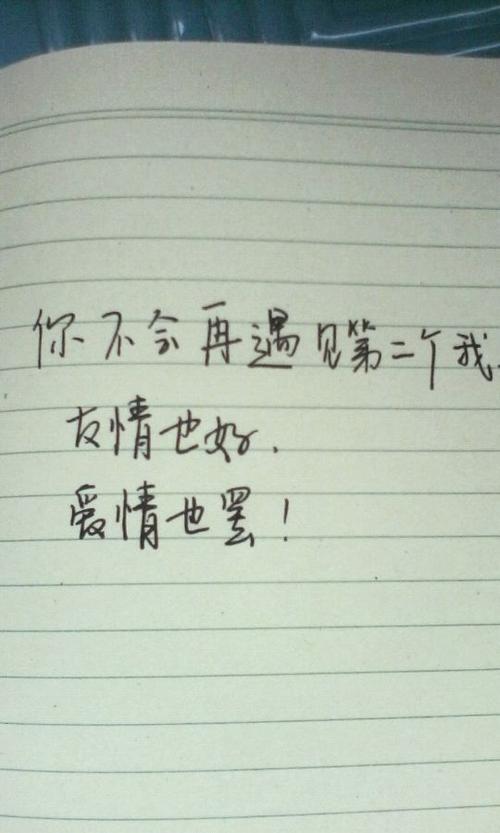 你不会再遇见第二个我.
友情也好.
爱情也罢!